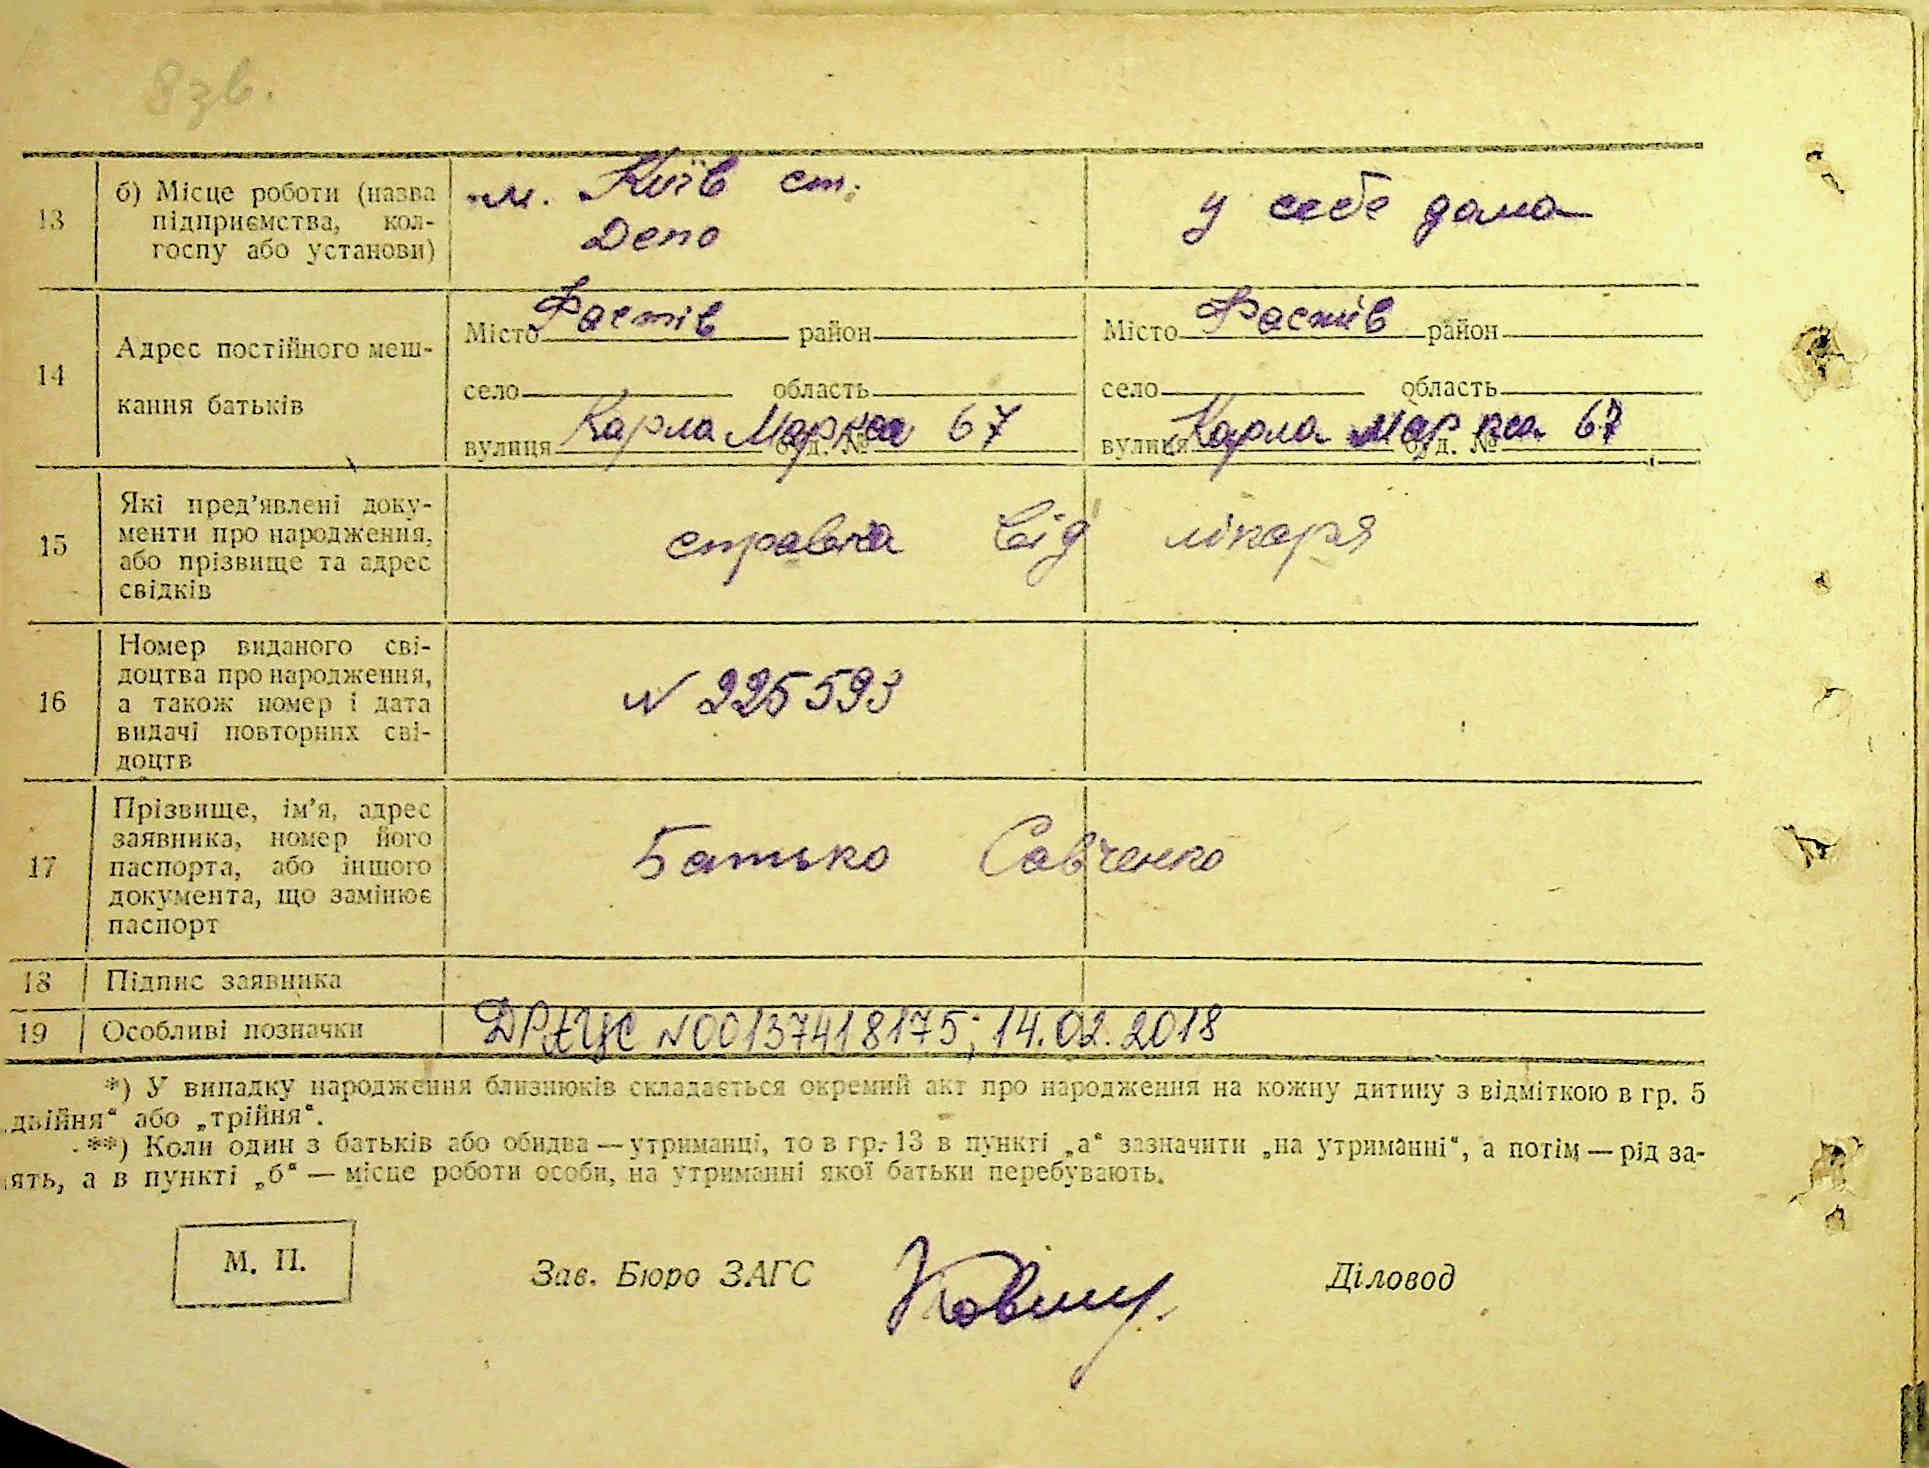 8зв.
13 б) Місце роботи (назва підприємства, кол-госпу або установи) м. Київ ст. Депо у себе дома
14 Адрес постійного меш-
кання батьків
Місто Фастів район Місто Фастів район
село область село область
вулиця Карла Маркса 67 буд. № вулиця Карла Маркса 67 буд. №
15 Які пред’явлені доку-
менти про народження,
або прізвище та адрес
свідків
справка від лікаря
16 Номер виданого сві-
доцтва про народження,
а також номер і дата
видачі повторних сві-
доцтв
N 225593
17 Прізвище, ім’я, адрес
заявника, номер його
паспорта, або іншого
документа, що замінює
паспорт
Батько Савченко
18 Підпис заявника
19 Особливі позначки ДРАЦС N00137418175; 14.02.2018
*) У випадку народження близнюків складається окремий акт про народження на кожну дитину з відміткою в гр. 5
„двійня“ або „трійня“.
**) Коли один з батьків або обидва — утриманці, то в гр. 13 в пункті „а“ зазначити „на утриманні“, а потім — рід за-
нять, а в пункті „б“ — місце роботи особи, на утриманні якої батьки перебувають.
М. П. Зав. Бюро ЗАГС Діловод